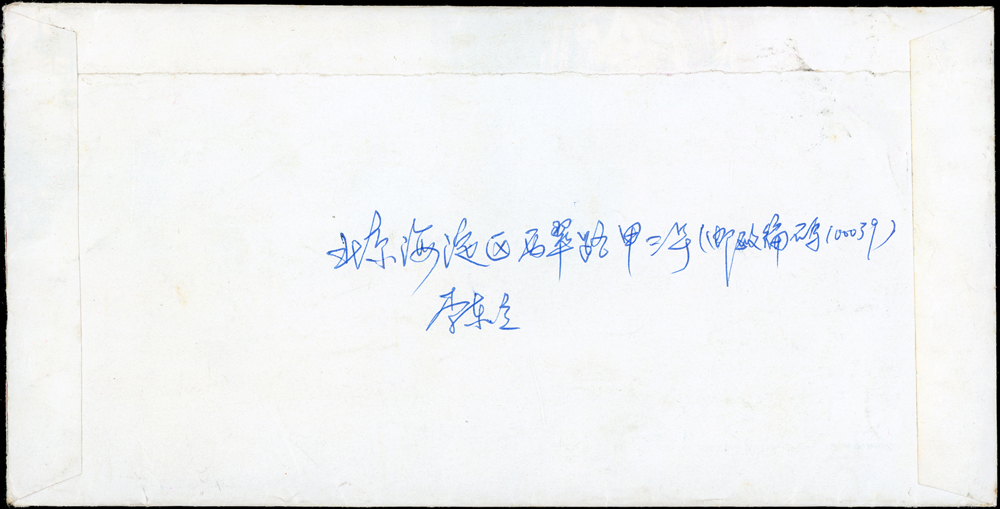 北京海淀区西翠路甲二号(邮政编码100039)
李东立